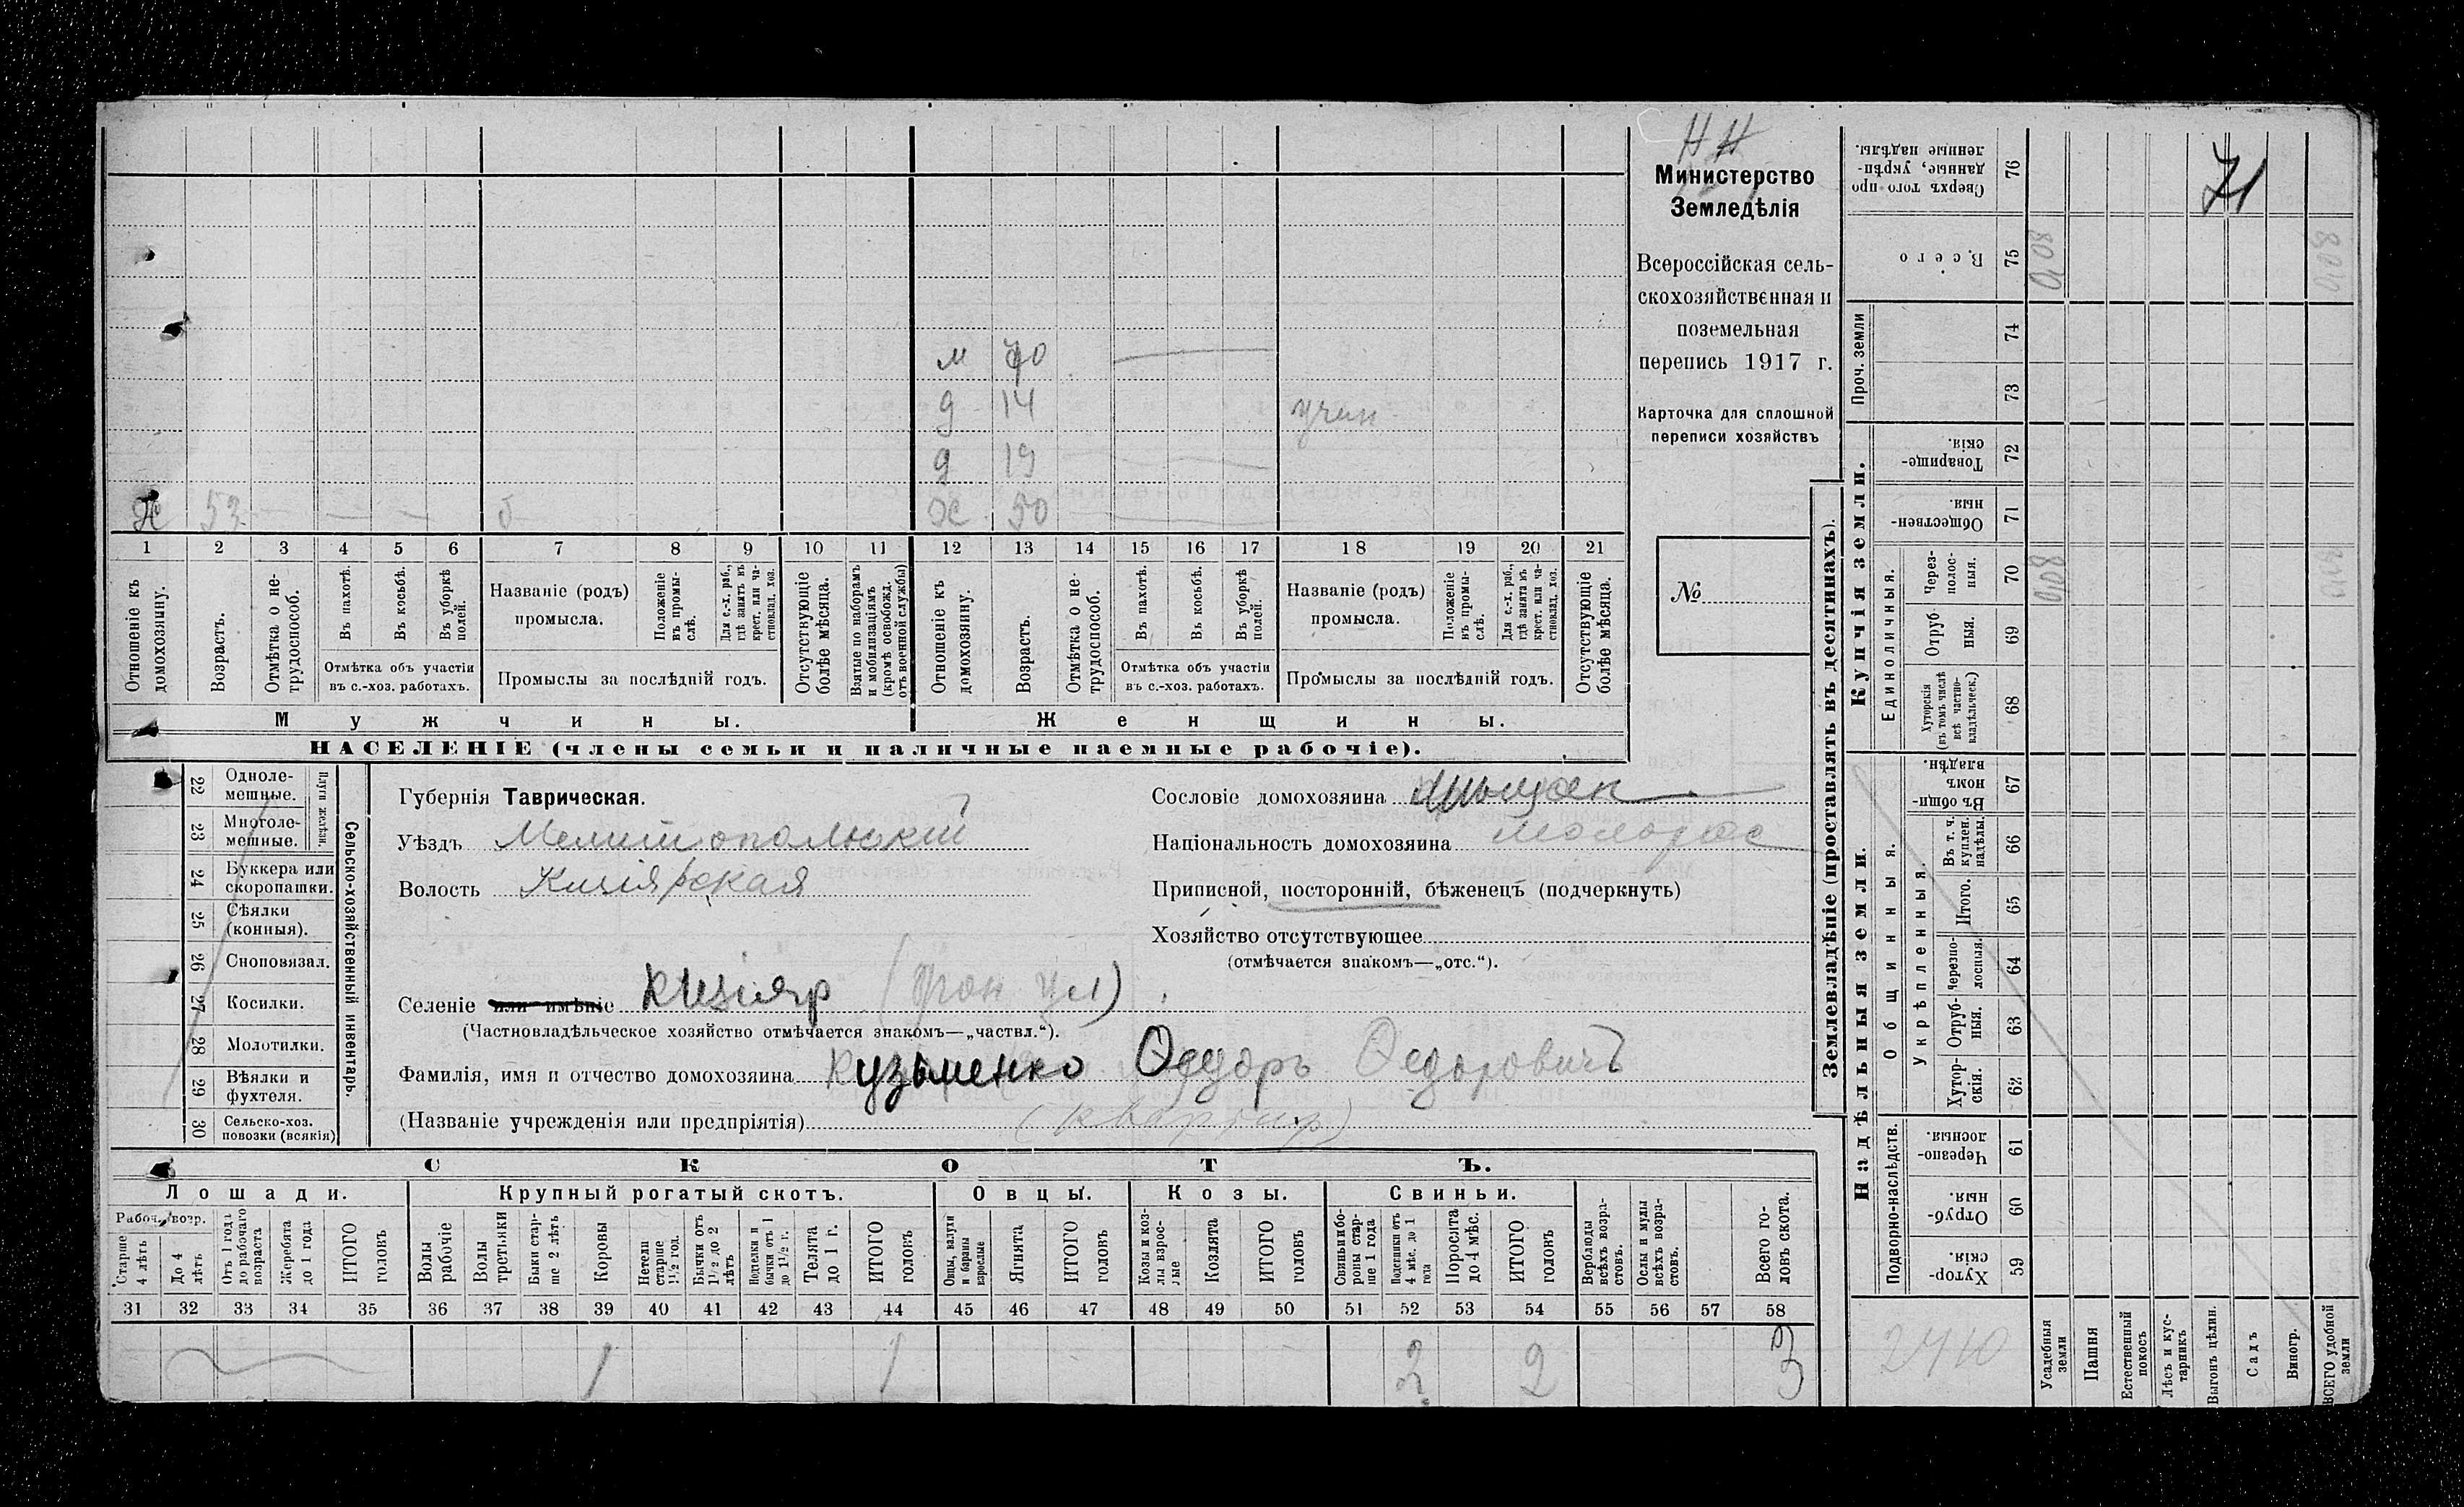 Н Н
Министерство
Земледѣлія
Всероссійская сель-
скохозяйственная и
поземельная
перепись 1917 г.
Карточка для сплошной
переписи хозяйствъ
№
м 70
д 14 учен
д 19
Х 53 Х 50
1 2 3 4 5 6 7 8 9 10 11 12 13 14 15 16 17 18 19 20 21
Отношеніе къ домохозяину.
Возрастъ.
Отмѣтка о не-трудоспособ.
Въ пахотѣ.
Въ косьбѣ.
Въ уборкѣ полей.
Названіе (родъ) промысла.
Положеніе въ промы-слѣ.
Для с.-х. раб., гдѣ занятъ въ крест. или ча-стновлад. хоз.
Отсутствующіе болѣе мѣсяца.
Взятые по наборамъ и мобилизаціямъ (кромѣ освобожд. отъ военной службы)
Отношеніе къ домохозяину.
Возрастъ.
Отмѣтка о не-трудоспособ.
Въ пахотѣ.
Въ косьбѣ.
Въ уборкѣ полей.
Названіе (родъ) промысла.
Положеніе въ промы-слѣ.
Для с.-х. раб., гдѣ занята въ крест. или ча-стновлад. хоз.
Отсутствующіе болѣе мѣсяца.
Отмѣтка объ участіи въ с.-хоз. работахъ.
Промыслы за послѣдній годъ.
Отмѣтка объ участіи въ с.-хоз. работахъ.
Промыслы за послѣдній годъ.
Мужчины. Женщины.
НАСЕЛЕНІЕ (члены семьи и наличные наемные рабочіе).
Сельско-хозяйственный инвентарь.
Плуги желѣзн.
22 Одноле-мешные.
23 Многоле-мешные.
24 Буккера или скоропашки.
25 Сѣялки (конныя).
26 Сноповязал.
27 Косилки.
28 Молотилки.
29 Вѣялки и фухтеля.
30 Сельско-хоз. повозки (всякія)
Губернія Таврическая.
Уѣздъ Мелитопольскій
Волость Кизіярская
Сословіе домохозяина
Національность домохозяина малорос
Приписной, посторонній, бѣженецъ (подчеркнуть)
Хозяйство отсутствующее
(отмѣчается знакомъ—„отс.“).
Селеніе или имѣніе Кизіяр
(Частновладѣльческое хозяйство отмѣчается знакомъ—„частвл.“).
Фамилія, имя и отчество домохозяина Кузьменко Ѳедоръ Ѳедоровичъ
(Названіе учрежденія или предпріятія) (квартир)
СКОТЪ.
Лошади. Крупный рогатый скотъ. Овцы. Козы. Свиньи.
Рабоч. возр.
Старше 4 лѣтъ
До 4 лѣтъ
Отъ 1 года до рабочаго возраста
Жеребята до 1 года
ИТОГО головъ
Волы рабочіе
Волы третьяки
Быки стар-ше 2 лѣтъ
Коровы
Нетели старше 1½ год.
Бычки отъ 1½ до 2 лѣтъ
Подтелки и бычки отъ 1 до 1½ г.
Телята до 1 г.
ИТОГО головъ
Овцы, валухи и бараны взрослые
Ягнята
ИТОГО головъ
Козы и коз-лы взрос-лые
Козлята
ИТОГО головъ
Свиньи и бо-ровы стар-ше 1 года
Подсвинки отъ 4 мѣс. до 1 года
Поросята до 4 мѣс.
ИТОГО головъ
Верблюды всѣхъ возра-стовъ.
Ослы и мулы всѣхъ возра-стовъ.
Всего го-ловъ скота.
31 32 33 34 35 36 37 38 39 40 41 42 43 44 45 46 47 48 49 50 51 52 53 54 55 56 57 58
1 1 2 2 3
Землевладѣніе (проставлять въ десятинахъ).
Надѣльныя земли. Купчія земли. Проч. земли
Подворно-наслѣдств.
Общинныя.
Укрѣпленныя.
Единоличныя.
76 Сверхъ того про данные, укрѣп-ленные надѣлы.
75 Всего 0,08 0,08
74
73
72 Товарище-скія.
71 Обществен-ныя
70 Через-полос-ныя. 0,08
69 Отруб ныя.
68 Хуторскія (въ томъ числѣ всѣ частно-владѣльческ.)
67 Въ общи-номъ владѣн.
66 Въ т. ч. куплен. надѣлы.
65 Итого.
64 Черезпо-лосныя.
63 Отруб-ныя.
62 Хутор-скія.
61 Черезпо-лосныя.
60 Отруб-ныя.
59 Хутор-скія.
71
2410
Усадебныя земли
Пашня
Естественный покосъ
Лѣсъ и кус-тарникъ
Выгонъ цѣлин.
Садъ
Виногр.
ВСЕГО удобной земли